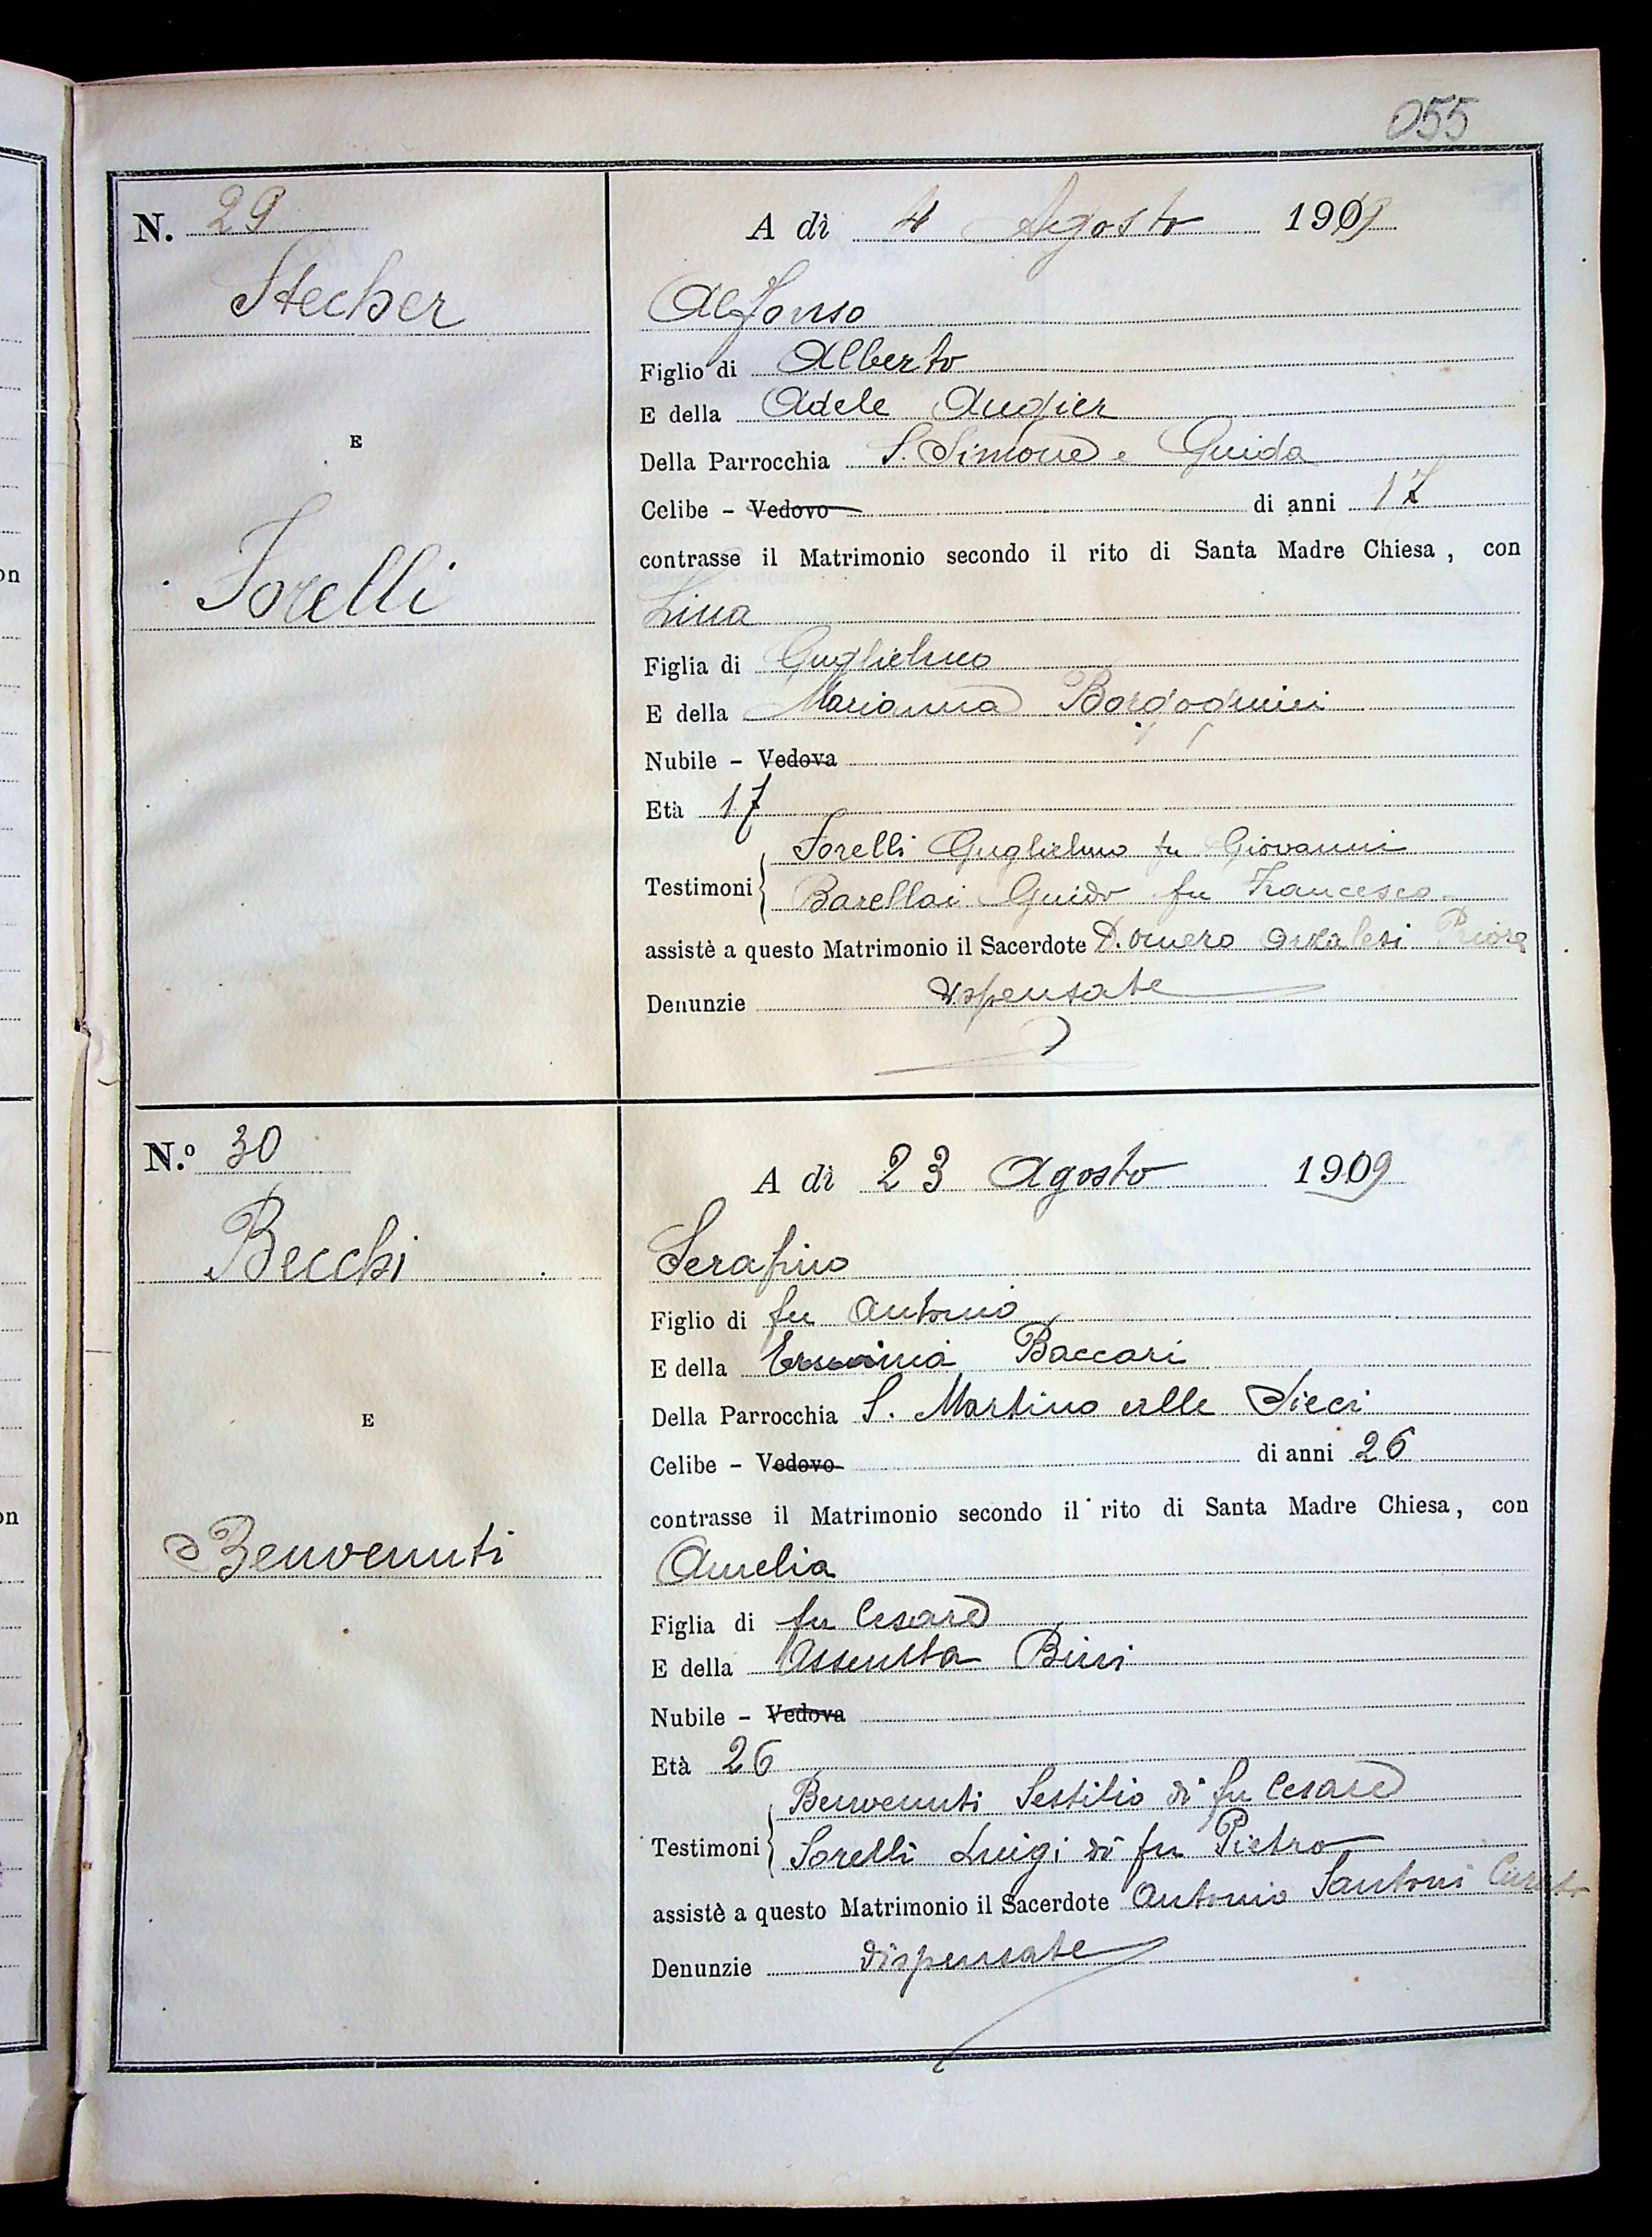 055
N. 29
Stecher
E
Forelli
A dì 4 Agosto 1909
Alfonso
Figlio di Alberto
E della Adele Augier
Della Parrocchia S. Simone e Guida
Celibe - Vedovo di anni 17
contrasse il Matrimonio secondo il rito di Santa Madre Chiesa, con
Lina
Figlia di Guglielmo
E della Marianna Borgognini
Nubile - Vedova
Età 17
Forelli Guglielmo fu Giovanni
Testimoni
Barellai Guido fu Francesco
assistè a questo Matrimonio il Sacerdote D. Omero Priore
Denunzie dispensate
N.º 30
Becchi
E
Benvenuti
A dì 23 Agosto 1909
Serafino
Figlio di fu Antonio
E della Baccari
Della Parrocchia S. Martino alle Sieci
Celibe - Vedovo di anni 26
contrasse il Matrimonio secondo il rito di Santa Madre Chiesa, con
Amelia
Figlia di fu Cesare
E della Assunta Bini
Nubile - Vedova
Età 26
Benvenuti Sestilio di fu Cesare
Testimoni
Sorelli Luigi di fu Pietro
assistè a questo Matrimonio il Sacerdote Antonio Santoni Curato
Denunzie dispensate